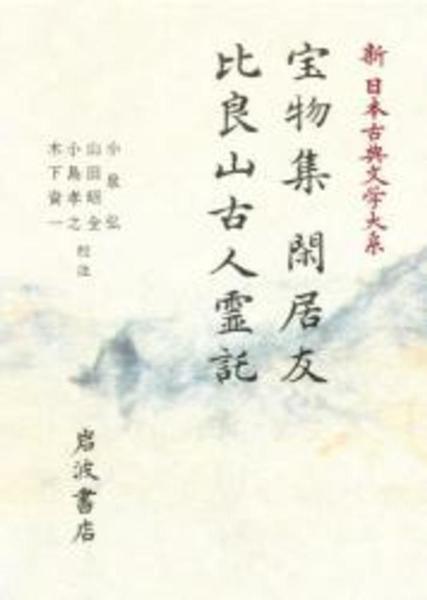 新 日本古典文学大系
宝物集 閑居友
比良山古人霊託
小泉弘
山田昭全
小島孝之
木下資一
校注
岩波書店